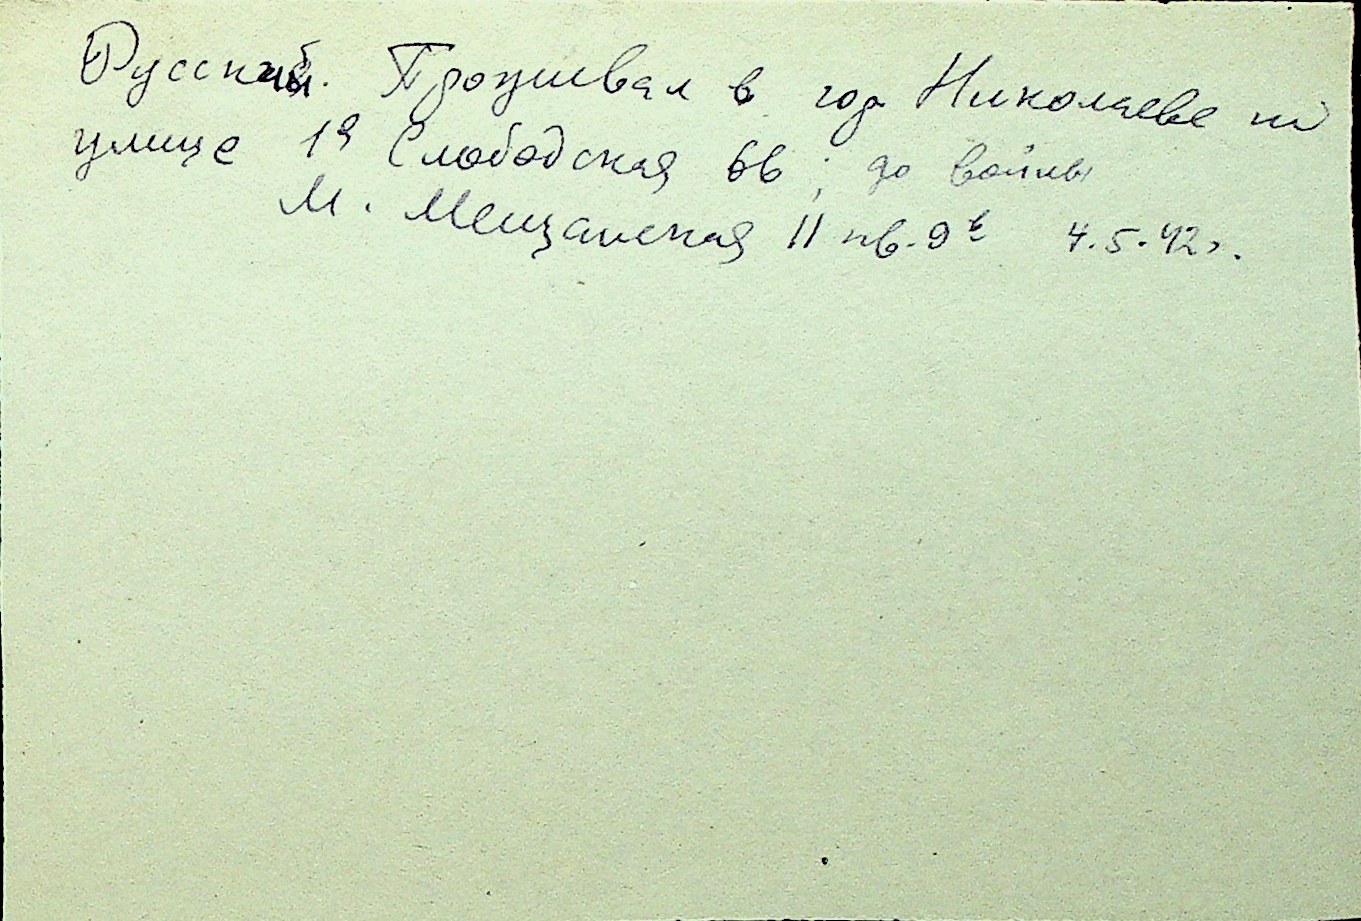 Русский. Проживал в гор Николаеве по
улице 1я Слободская 66; до войны
М. Мещанская 11 кв. 9в 4.5.42г.